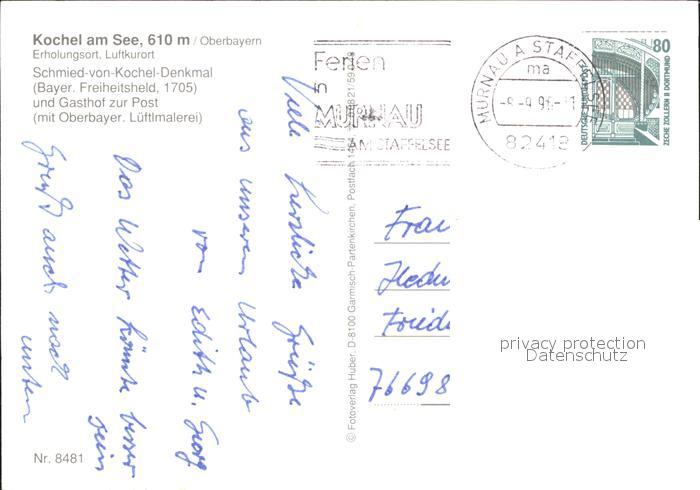 Kochel am See, 610 m / Oberbayern
Erholungsort, Luftkurort
Schmied-von-Kochel-Denkmal
(Bayer. Freiheitsheld, 1705)
und Gasthof zur Post
(mit Oberbayer. Lüftlmalerei)
Ferien
MURNAU
AM STAFFELSEE
MURNAU A STAFFELSEE
ma
82418
80
DEUTSCHE BUNDESPOST
ZECHE ZOLLERN II DORTMUND
Viele herzliche Grüße
aus unserem Urlaub
von Edith u. Georg
Das Wetter könnte besser
sein
Grüßt auch noch
unten
© Fotoverlag Huber, D-8100 Garmisch-Partenkirchen, Postfach
Frau
76698
privacy protection
Datenschutz
Nr. 8481